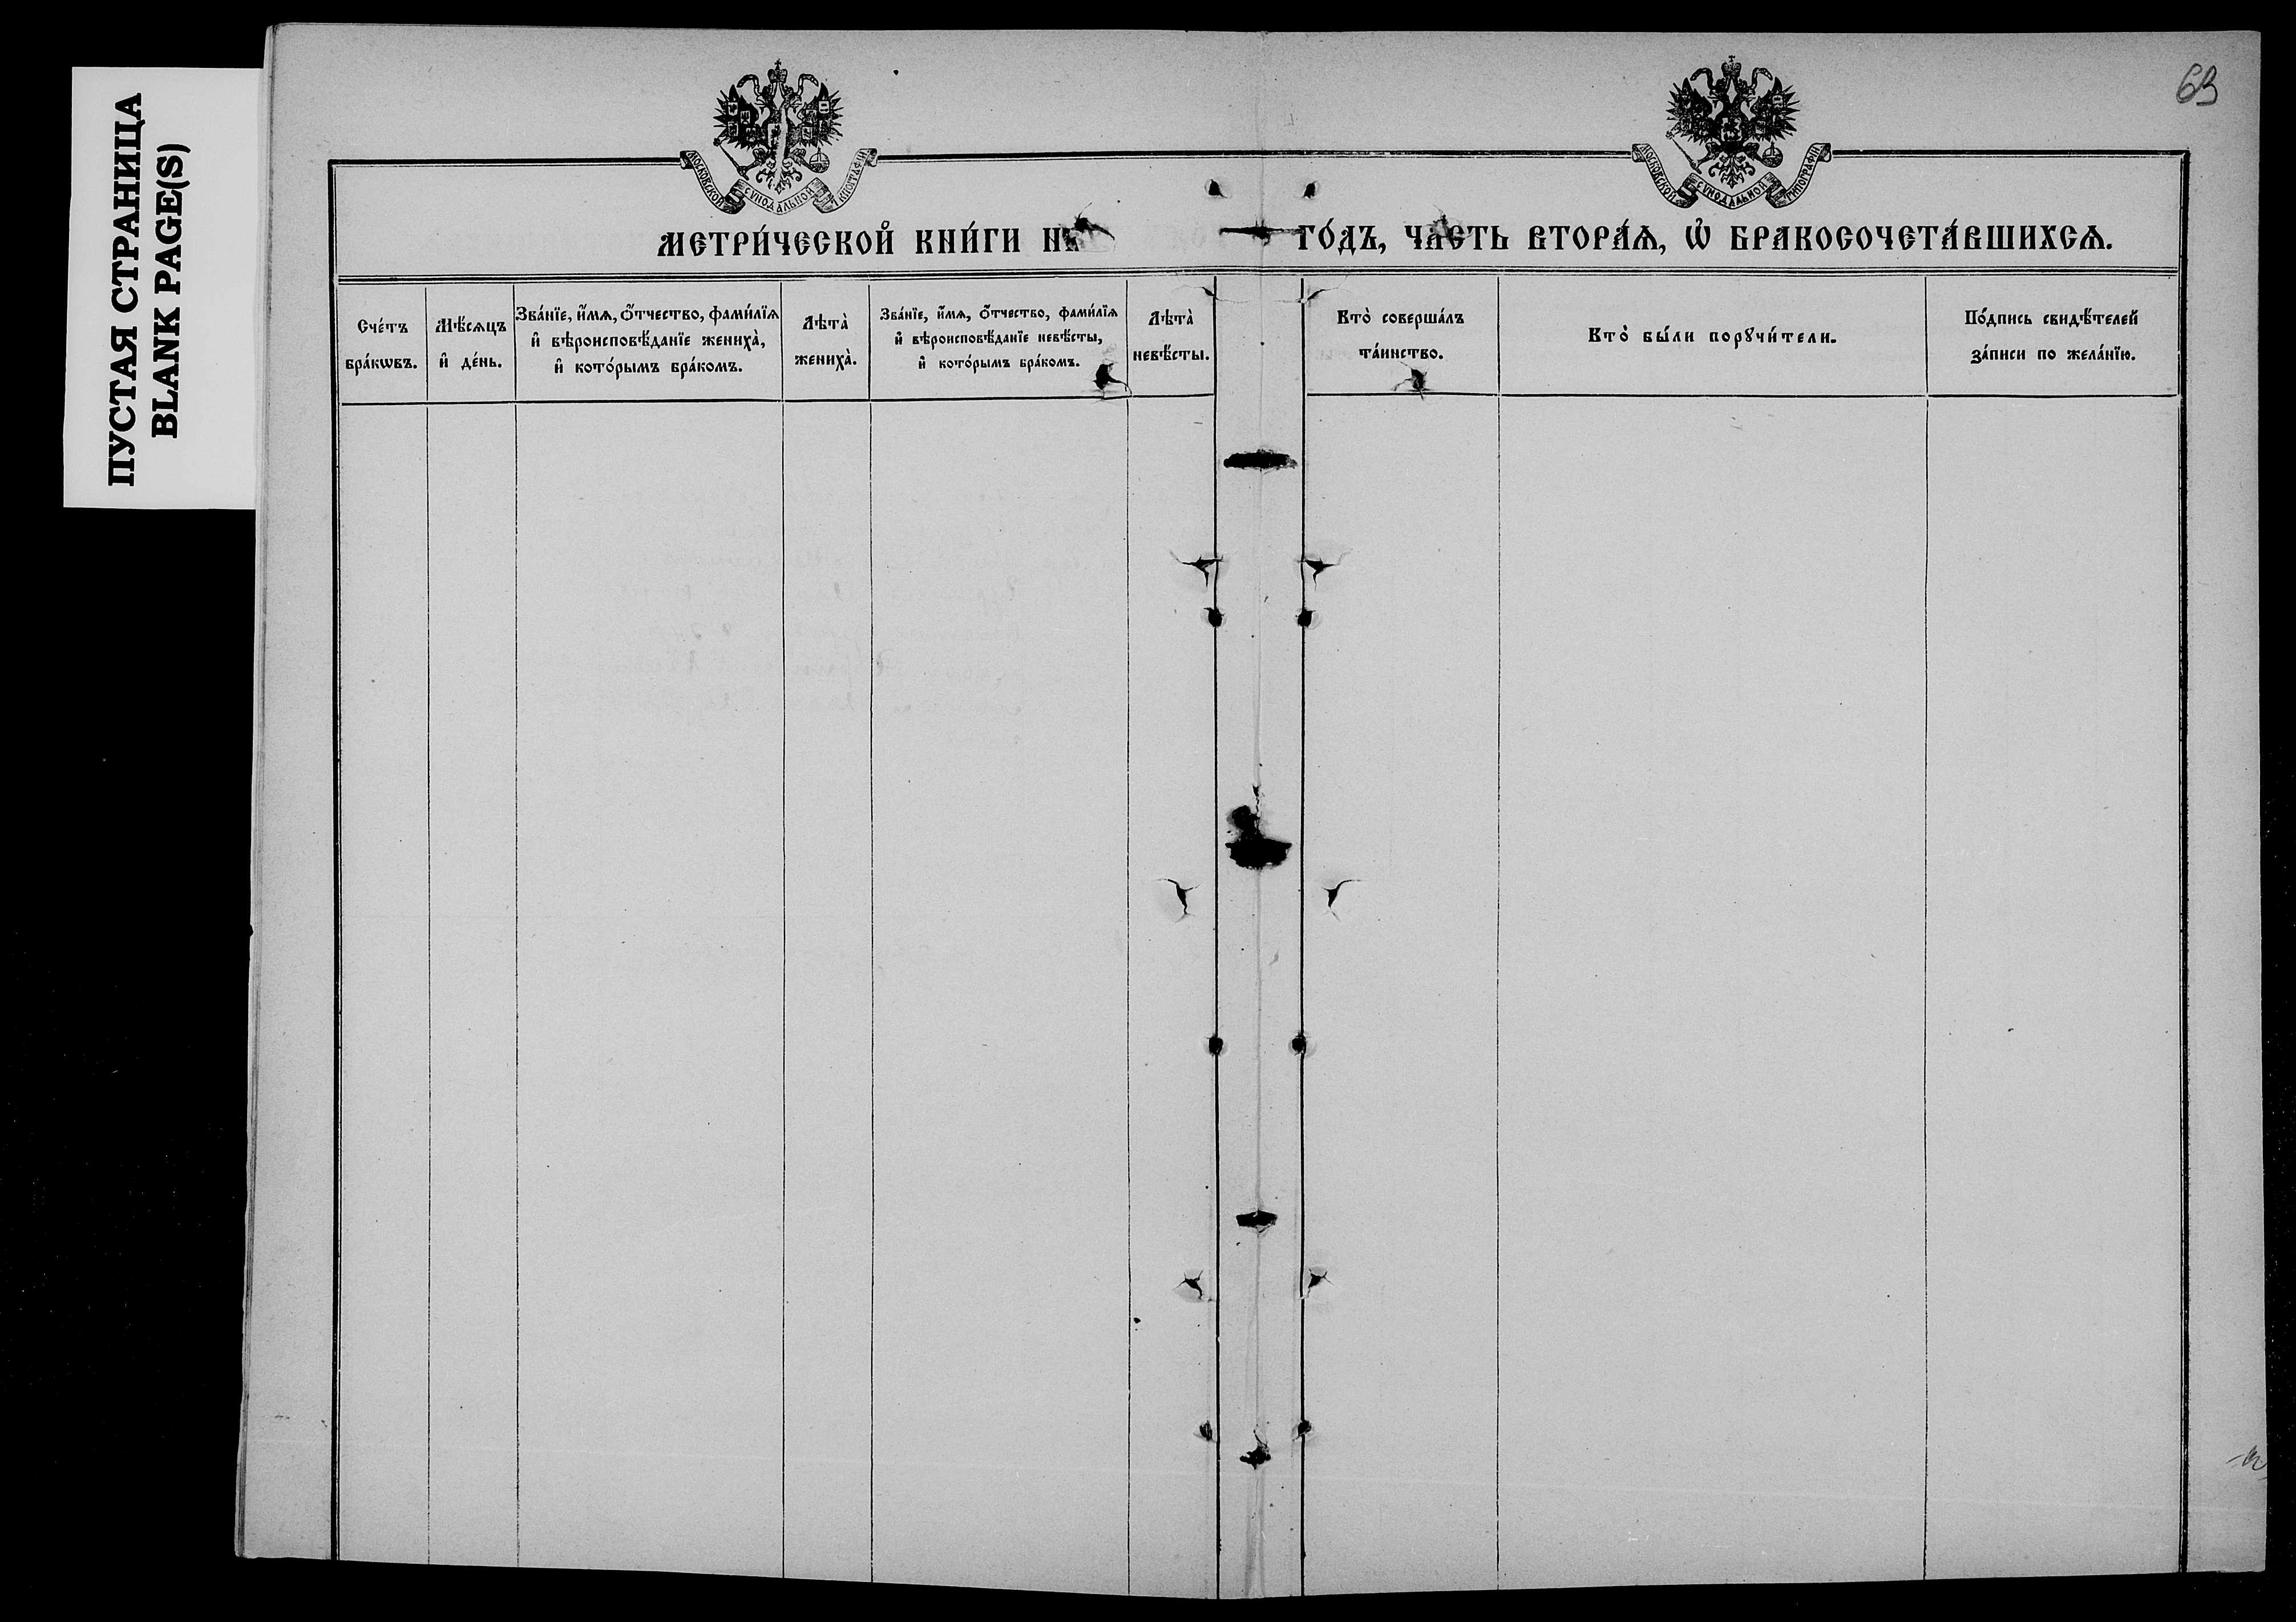 ПУСТАЯ СТРАНИЦА
BLANK PAGE(S)
63
МОСКОВСКОЙ СѴНОДАЛЬНОЙ ТИПОГРАФІИ
МОСКОВСКОЙ СѴНОДАЛЬНОЙ ТИПОГРАФІИ
МЕТРИ́ЧЕСКОЙ КНИ́ГИ НА ГО́ДЪ, ЧА́СТЬ ВТОРА́Ѧ, Ѡ҆ БРАКОСОЧЕТА́ВШИХСѦ.
Сче́тъ
бра́кѡвъ.
Мѣ́сѧцъ
и҆ де́нь.
Зва́нїе, и҆́мѧ, ѻ҆́тчество, фами́лїѧ
и҆ вѣроисповѣ́данїе жениха̀,
и҆ кото́рымъ бра́комъ.
Лѣта̀
жениха̀.
Зва́нїе, и҆́мѧ, ѻ҆́тчество, фами́лїѧ
и҆ вѣроисповѣ́данїе невѣ́сты,
и҆ кото́рымъ бра́комъ.
Лѣта̀
невѣ́сты.
Кто̀ соверша́лъ
та́инство.
Кто̀ бы́ли порꙋчи́тели.
По́дпись свидѣ́телей
за́писи по жела́нїю.